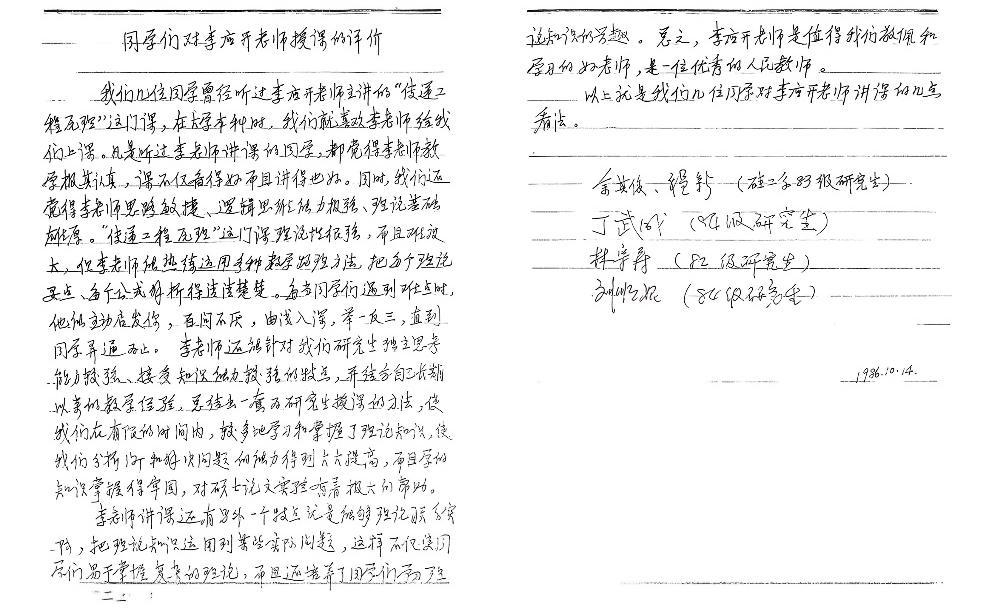 同学们对李应开老师授课的评价
我们几位同学曾经听过李应开老师主讲的“传递工
程原理”这门课，在大学本科时，我们就喜欢李老师给我
们上课。凡是听过李老师讲课的同学，都觉得李老师教
学极其认真，课不仅备得好而且讲得也好。同时，我们还
觉得李老师思路敏捷、逻辑思维能力极强、理论基础
雄厚。“传递工程原理”这门课理论性很强，而且难度
大，但李老师能熟练运用多种数学处理方法，把每个理论
要点、每个公式解析得清清楚楚。每当同学们遇到难点时，
他能主动启发你，百问不厌，由浅入深，举一反三，直到
同学弄通为止。李老师还能针对我们研究生独立思考
能力较强、接受知识能力较强的特点，并结合自己长期
以来的教学经验，总结出一套为研究生授课的方法，使
我们在有限的时间内，较多地学习和掌握了理论知识，使
我们分析问和解决问题的能力得到大大提高，而且学的
知识掌握得牢固，对硕士论文实验有着极大的帮助。
李老师讲课还有另外一个特点就是能够理论联系实
际，把理论知识运用到某些实际问题，这样不仅使同
学们易于掌握复杂的理论，而且还培养了同学们学习理
论知识的兴趣。总之，李应开老师是值得我们敬佩和
学习的好老师，是一位优秀的人民教师。
以上就是我们几位同学对李应开老师讲课的几点
看法。
余英俊、程新（硅工系83级研究生）
丁武成（84级研究生）
林宗寿（82级研究生）
（84级研究生）
1986.10.14.
二